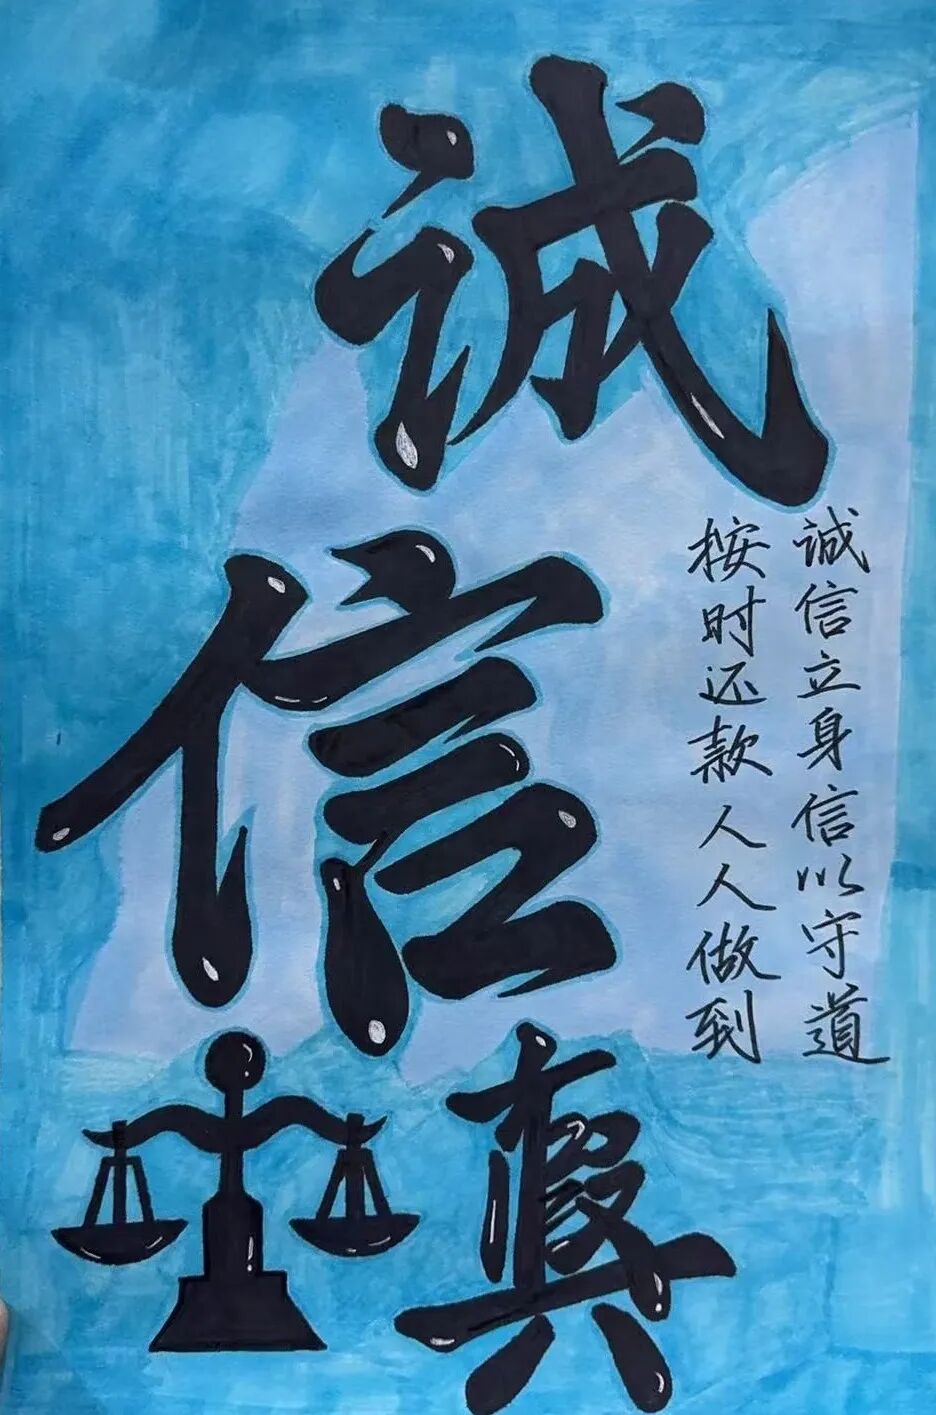 诚
信
诚信立身信以守道
按时还款人人做到